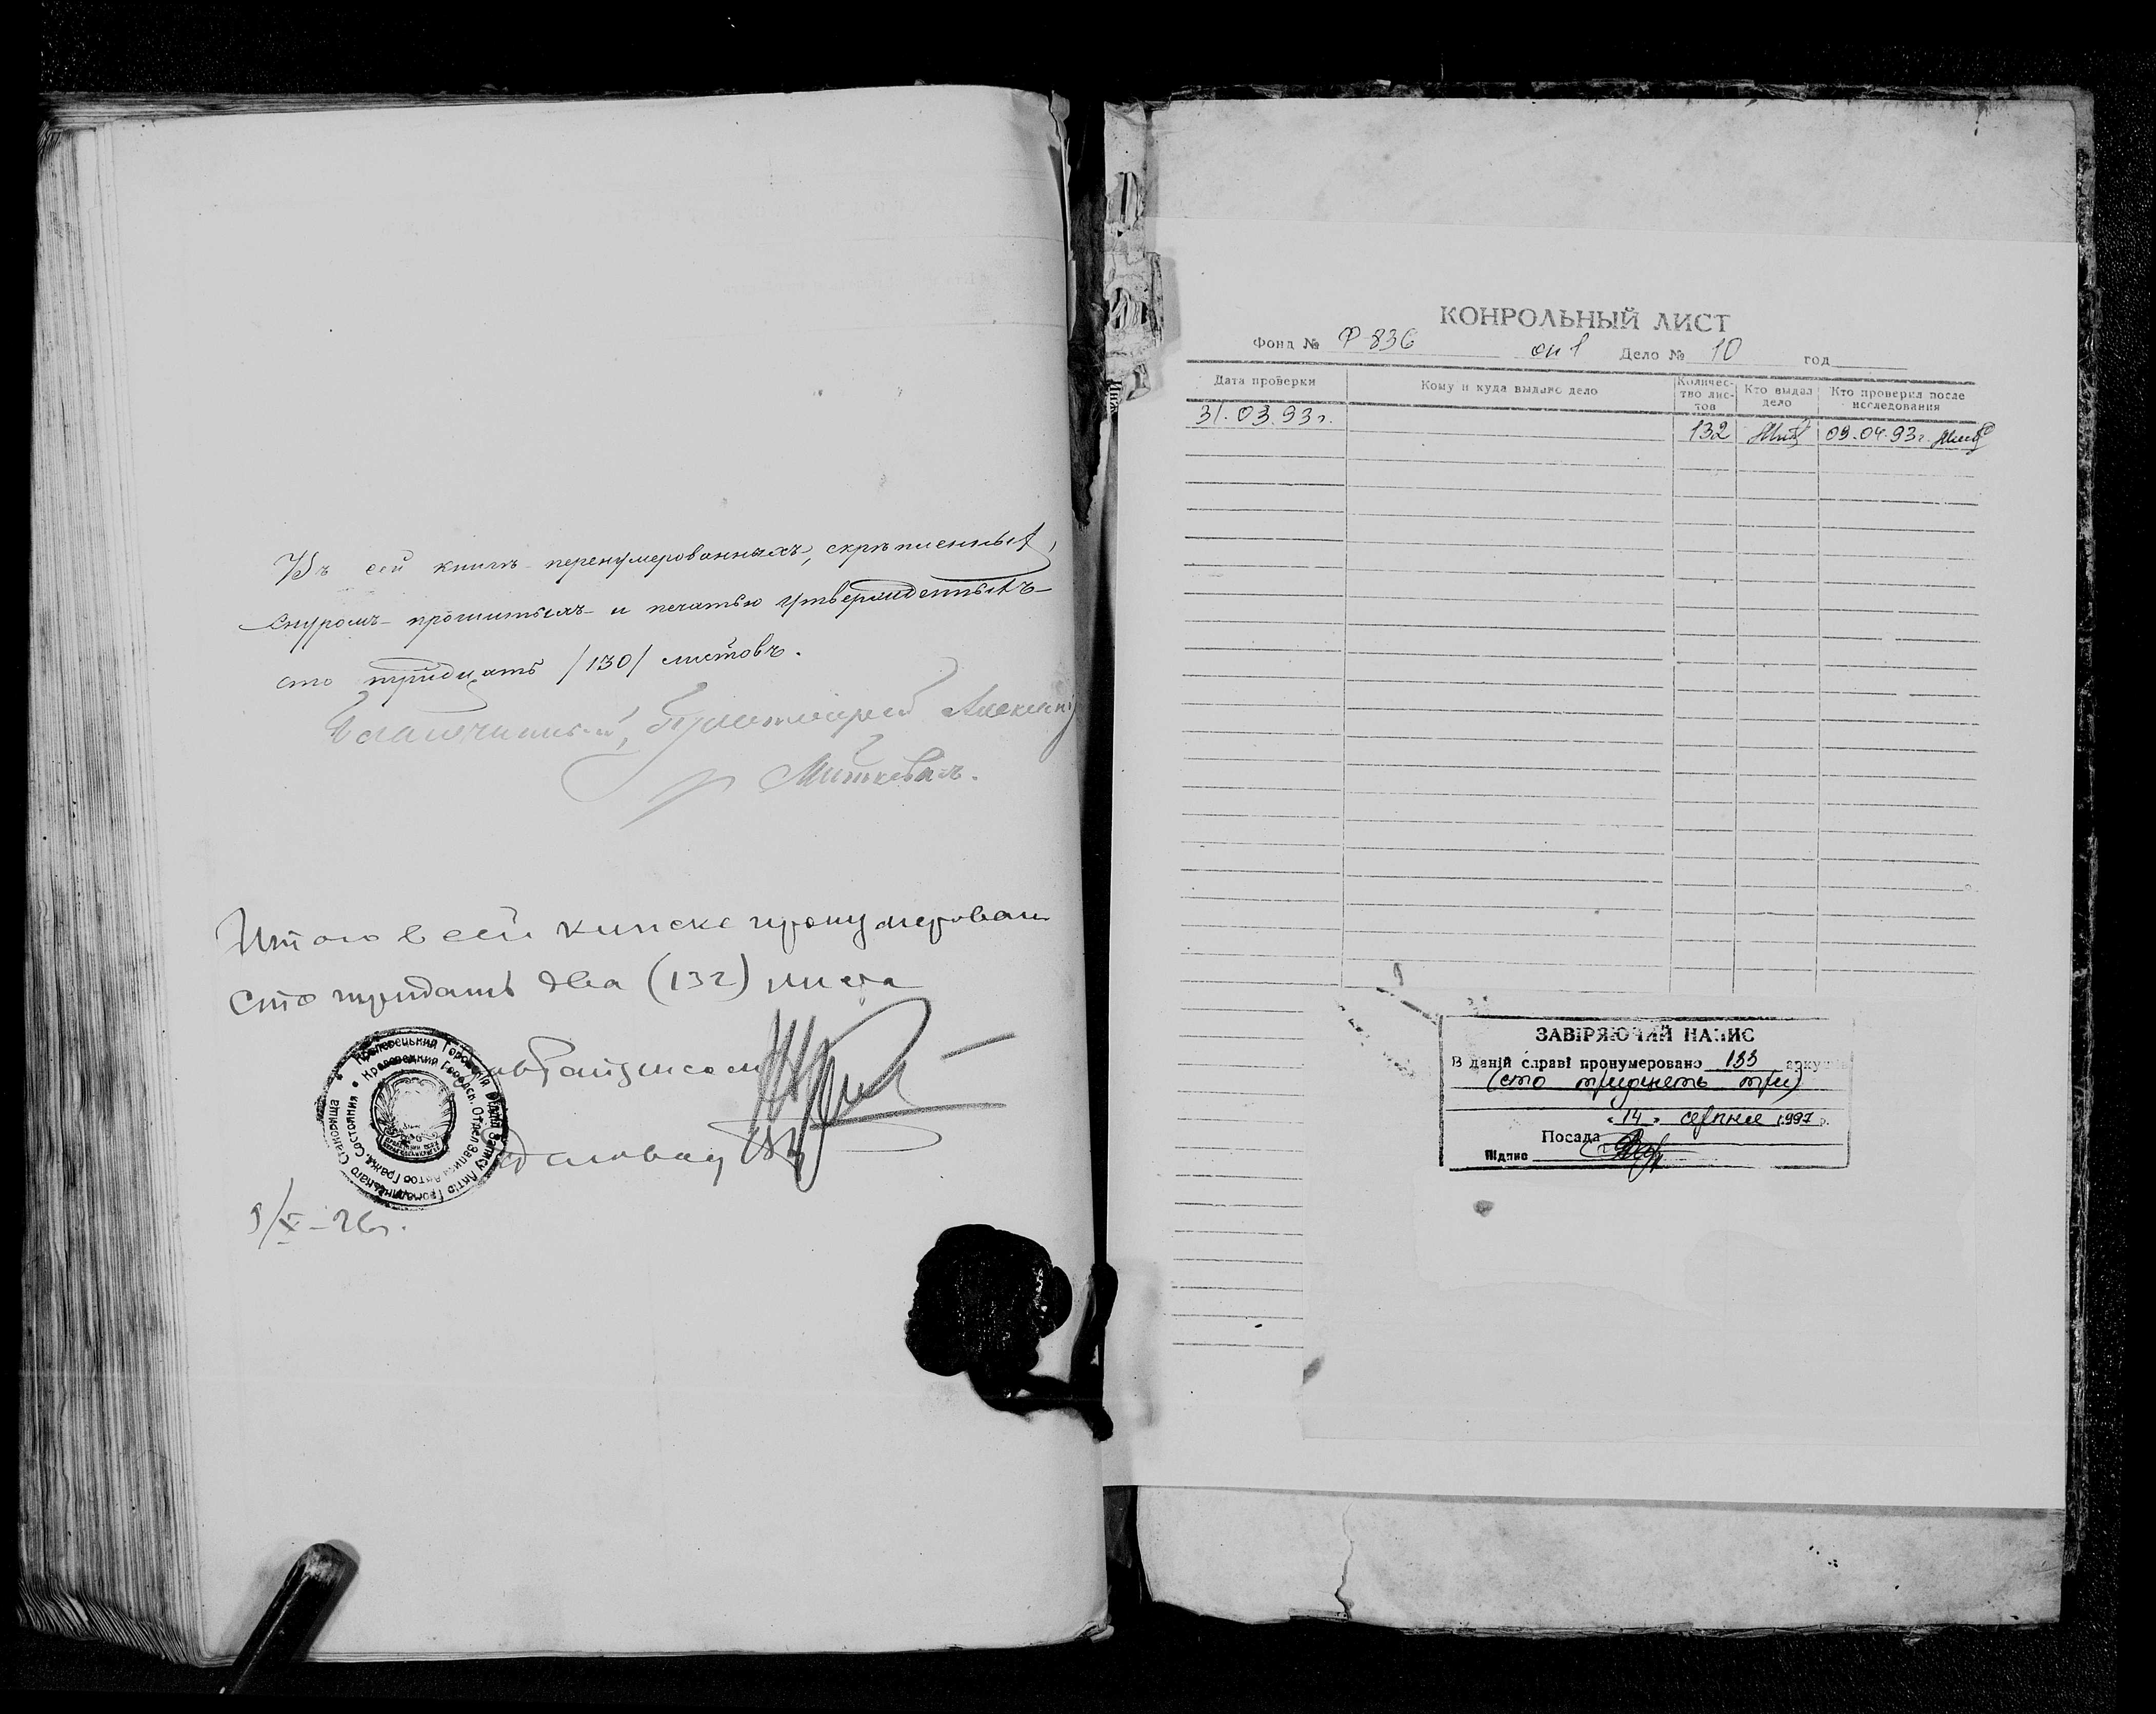 Въ сей книгѣ перенумерованныхъ, скрѣпленныхъ,
снуромъ прошитыхъ и печатью утвержденныхъ
сто тридцать /130/ листовъ.
Благочинный, Протоіерей Алексій
Миткевич.
Итого в сей книске пронумерован
сто тридать два (132) листа
9/X-26г.
Кролевецький Городський Відділ Запису Актів Громадянського Становища
Кролевецкий Городск. Отдел Записи Актов Гражд. Состояния
КОНРОЛЬНЫЙ ЛИСТ
Фонд № Ф-836 оп 1 Дело № 10 год
Дата проверки Кому и куда выдано дело Количество листов Кто выдал дело Кто проверил после исследования
31.03.93г. 132 09.04.93г.
ЗАВІРЯЮЧИЙ НАПИС
В даній справі пронумеровано 133 аркушів
(сто тридцять три)
"14" серпня 1997 р.
Посада
Підпис